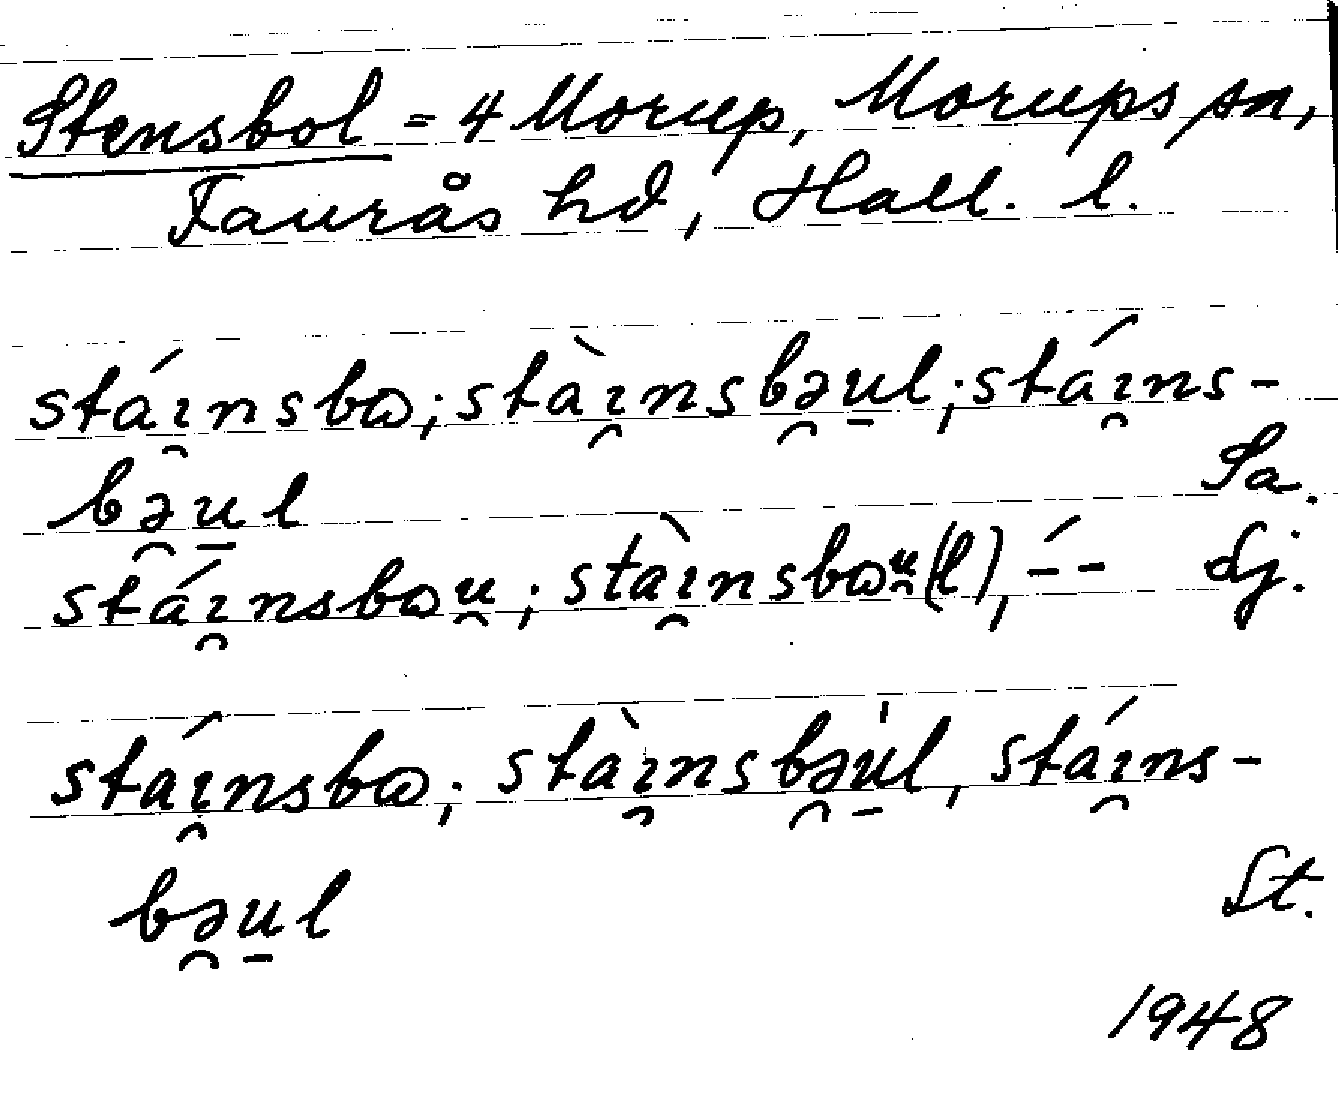 Stensbol = 4 Morup, Morups sn,
Faurås hd, Hall. l.
stáı̯nsbɷ; stàı̯nsbə̯u̱l; stáı̯ns-
bə̯u̱l Sa.
stáı̯nsbɷu̯; stàı̯nsbɷu̯(l), -́- Sj.
stáı̯nsbɷ; stàı̯nsbə̯u̱̍l, stáı̯ns-
bə̯u̱l St.
1948